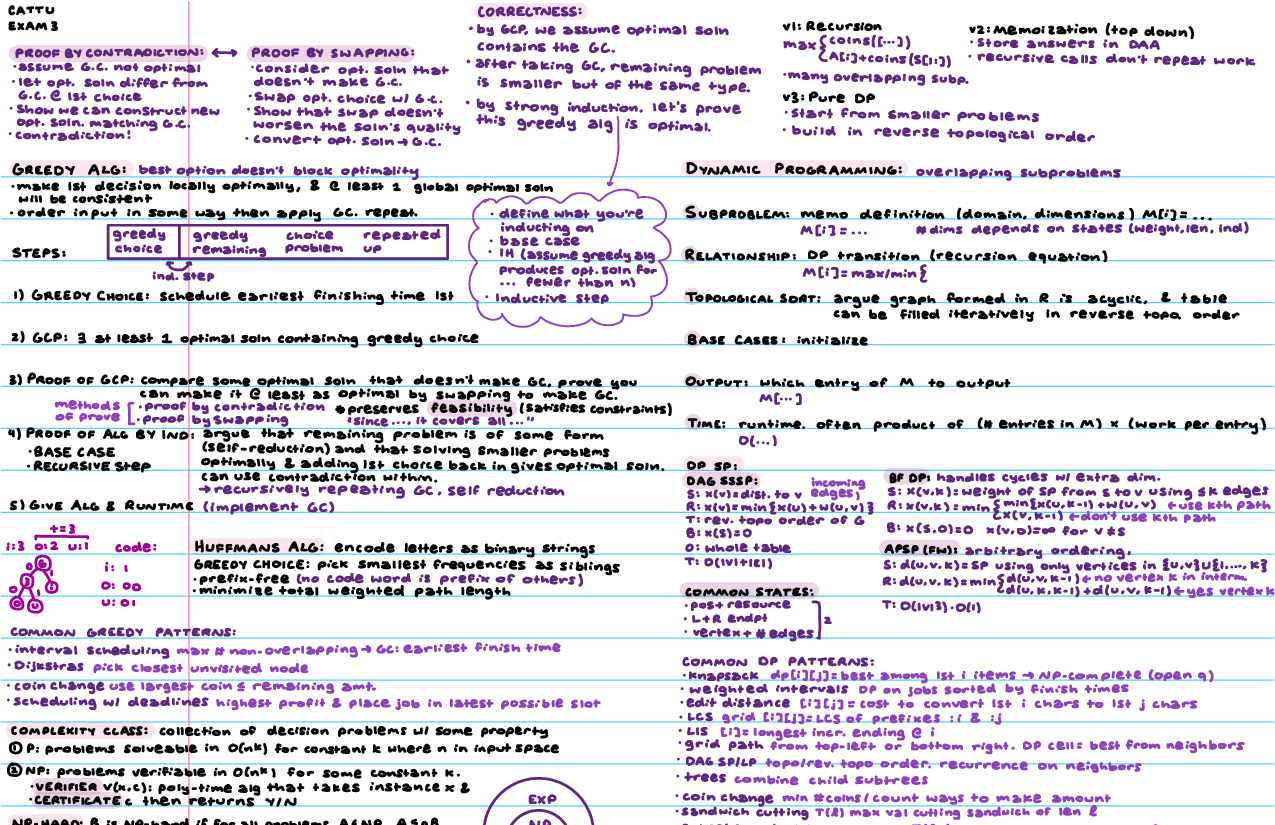 CATTU
EXAM 3
PROOF BY CONTRADICTION:
· assume G.C. not optimal
· let opt. soln differ from
G.C. @ 1st choice
· Show we can construct new
opt. soln. matching G.C.
· contradiction!
PROOF BY SWAPPING:
· consider opt. soln that
doesn't make G.C.
· Swap opt. choice w/ G.C.
· Show that swap doesn't
worsen the soln's quality
· convert opt. soln → G.C.
CORRECTNESS:
· by GCP, we assume optimal soln
contains the GC.
· after taking GC, remaining problem
is smaller but of the same type.
· by strong induction. let's prove
this greedy alg is optimal.
· define what you're
inducting on
· base case
· IH (assume greedy alg
produces opt. soln for
... fewer than n)
· Inductive step
GREEDY ALG: best option doesn't block optimality
· make 1st decision locally optimally, & @ least 1 global optimal soln
will be consistent
· order input in some way then apply GC. repeat.
STEPS:
greedy choice | greedy choice repeated
remaining problem up
ind. step
1) GREEDY CHOICE: schedule earliest finishing time 1st
2) GCP: ∃ at least 1 optimal soln containing greedy choice
3) PROOF OF GCP: compare some optimal soln that doesn't make GC, prove you
can make it @ least as optimal by swapping to make GC.
methods of prove [ · proof by contradiction
· proof by swapping
*preserves feasibility (satisfies constraints)
"since ..., it covers all ..."
4) PROOF OF ALG BY IND: argue that remaining problem is of some form
· BASE CASE (self-reduction) and that solving smaller problems
· RECURSIVE STEP optimally & adding 1st choice back in gives optimal soln.
can use contradiction within.
→ recursively repeating GC, self reduction
5) GIVE ALG & RUNTIME (implement GC)
t=3
i:3 o:2 u:1
code:
i: 1
O: 00
U: 01
HUFFMANS ALG: encode letters as binary strings
GREEDY CHOICE: pick smallest frequencies as siblings
· prefix-free (no code word is prefix of others)
· minimize total weighted path length
COMMON GREEDY PATTERNS:
· interval scheduling max # non-overlapping → GC: earliest finish time
· Dijkstras pick closest unvisited node
· coin change use largest coin ≤ remaining amt.
· scheduling w/ deadlines highest profit & place job in latest possible slot
COMPLEXITY CLASS: collection of decision problems w/ some property
① P: problems solveable in O(n^k) for constant k where n in input space
② NP: problems verifiable in O(n^k) for some constant k.
· VERIFIER V(x,c): poly-time alg that takes instance x &
· CERTIFICATE c then returns Y/N
EXP
NP
v1: Recursion
max { coins([...])
A[i]+coins(S[i:])
· many overlapping subp.
v2: Memoization (top down)
· Store answers in DAA
· recursive calls don't repeat work
v3: Pure DP
· Start from smaller problems
· build in reverse topological order
DYNAMIC PROGRAMMING: overlapping subproblems
SUBPROBLEM: memo definition (domain, dimensions) M[i]= ...
M[i]=... #dims depends on states (weight, len, ind)
RELATIONSHIP: DP transition (recursion equation)
M[i]=max/min{
TOPOLOGICAL SORT: argue graph formed in R is acyclic, & table
can be filled iteratively in reverse topo. order
BASE CASES: initialize
OUTPUT: which entry of M to output
M[...]
TIME: runtime. often product of (# entries in M) x (work per entry)
O(...)
DP SP:
DAG SSSP: incoming edges,
S: x(v)=dist. to v
R: x(v)=min{x(u)+w(u,v)}
T: rev. topo order of G
B: x(s)=0
O: whole table
T: O(|V|+|E|)
BF DP: handles cycles w/ extra dim.
S: x(v,k)=weight of SP from s to v using ≤k edges
R: x(v,k)=min{min{x(u,k-1)+w(u,v) ←use kth path
x(v,k-1) ←don't use kth path
B: x(s,0)=0 x(v,0)=∞ for v≠s
APSP (FW): arbitrary ordering.
S: d(u,v,k)=SP using only vertices in {u,v}U{1,..., k}
R: d(u,v,k)=min{d(u,v,k-1) ←no vertex k in interm.
d(u,k,k-1)+d(u,v,k-1) ←yes vertex k
T: O(|V|3)·O(1)
COMMON STATES:
· pos + resource
· L+R endpt
· vertex + # edges
2
COMMON DP PATTERNS:
· knapsack dp[i][j]=best among 1st i items → NP-complete (open q)
· weighted intervals DP on jobs sorted by finish times
· edit distance [i][j]=cost to convert 1st i chars to 1st j chars
· LCS grid [i][j]=LCS of prefixes :i & :j
· LIS [i]=longest incr. ending @ i
· grid path from top-left or bottom right. DP cell= best from neighbors
· DAG SP/LP topo/rev. topo order. recurrence on neighbors
· trees combine child subtrees
· coin change min #coins/count ways to make amount
· sandwich cutting T(l) max val cutting sandwich of len l